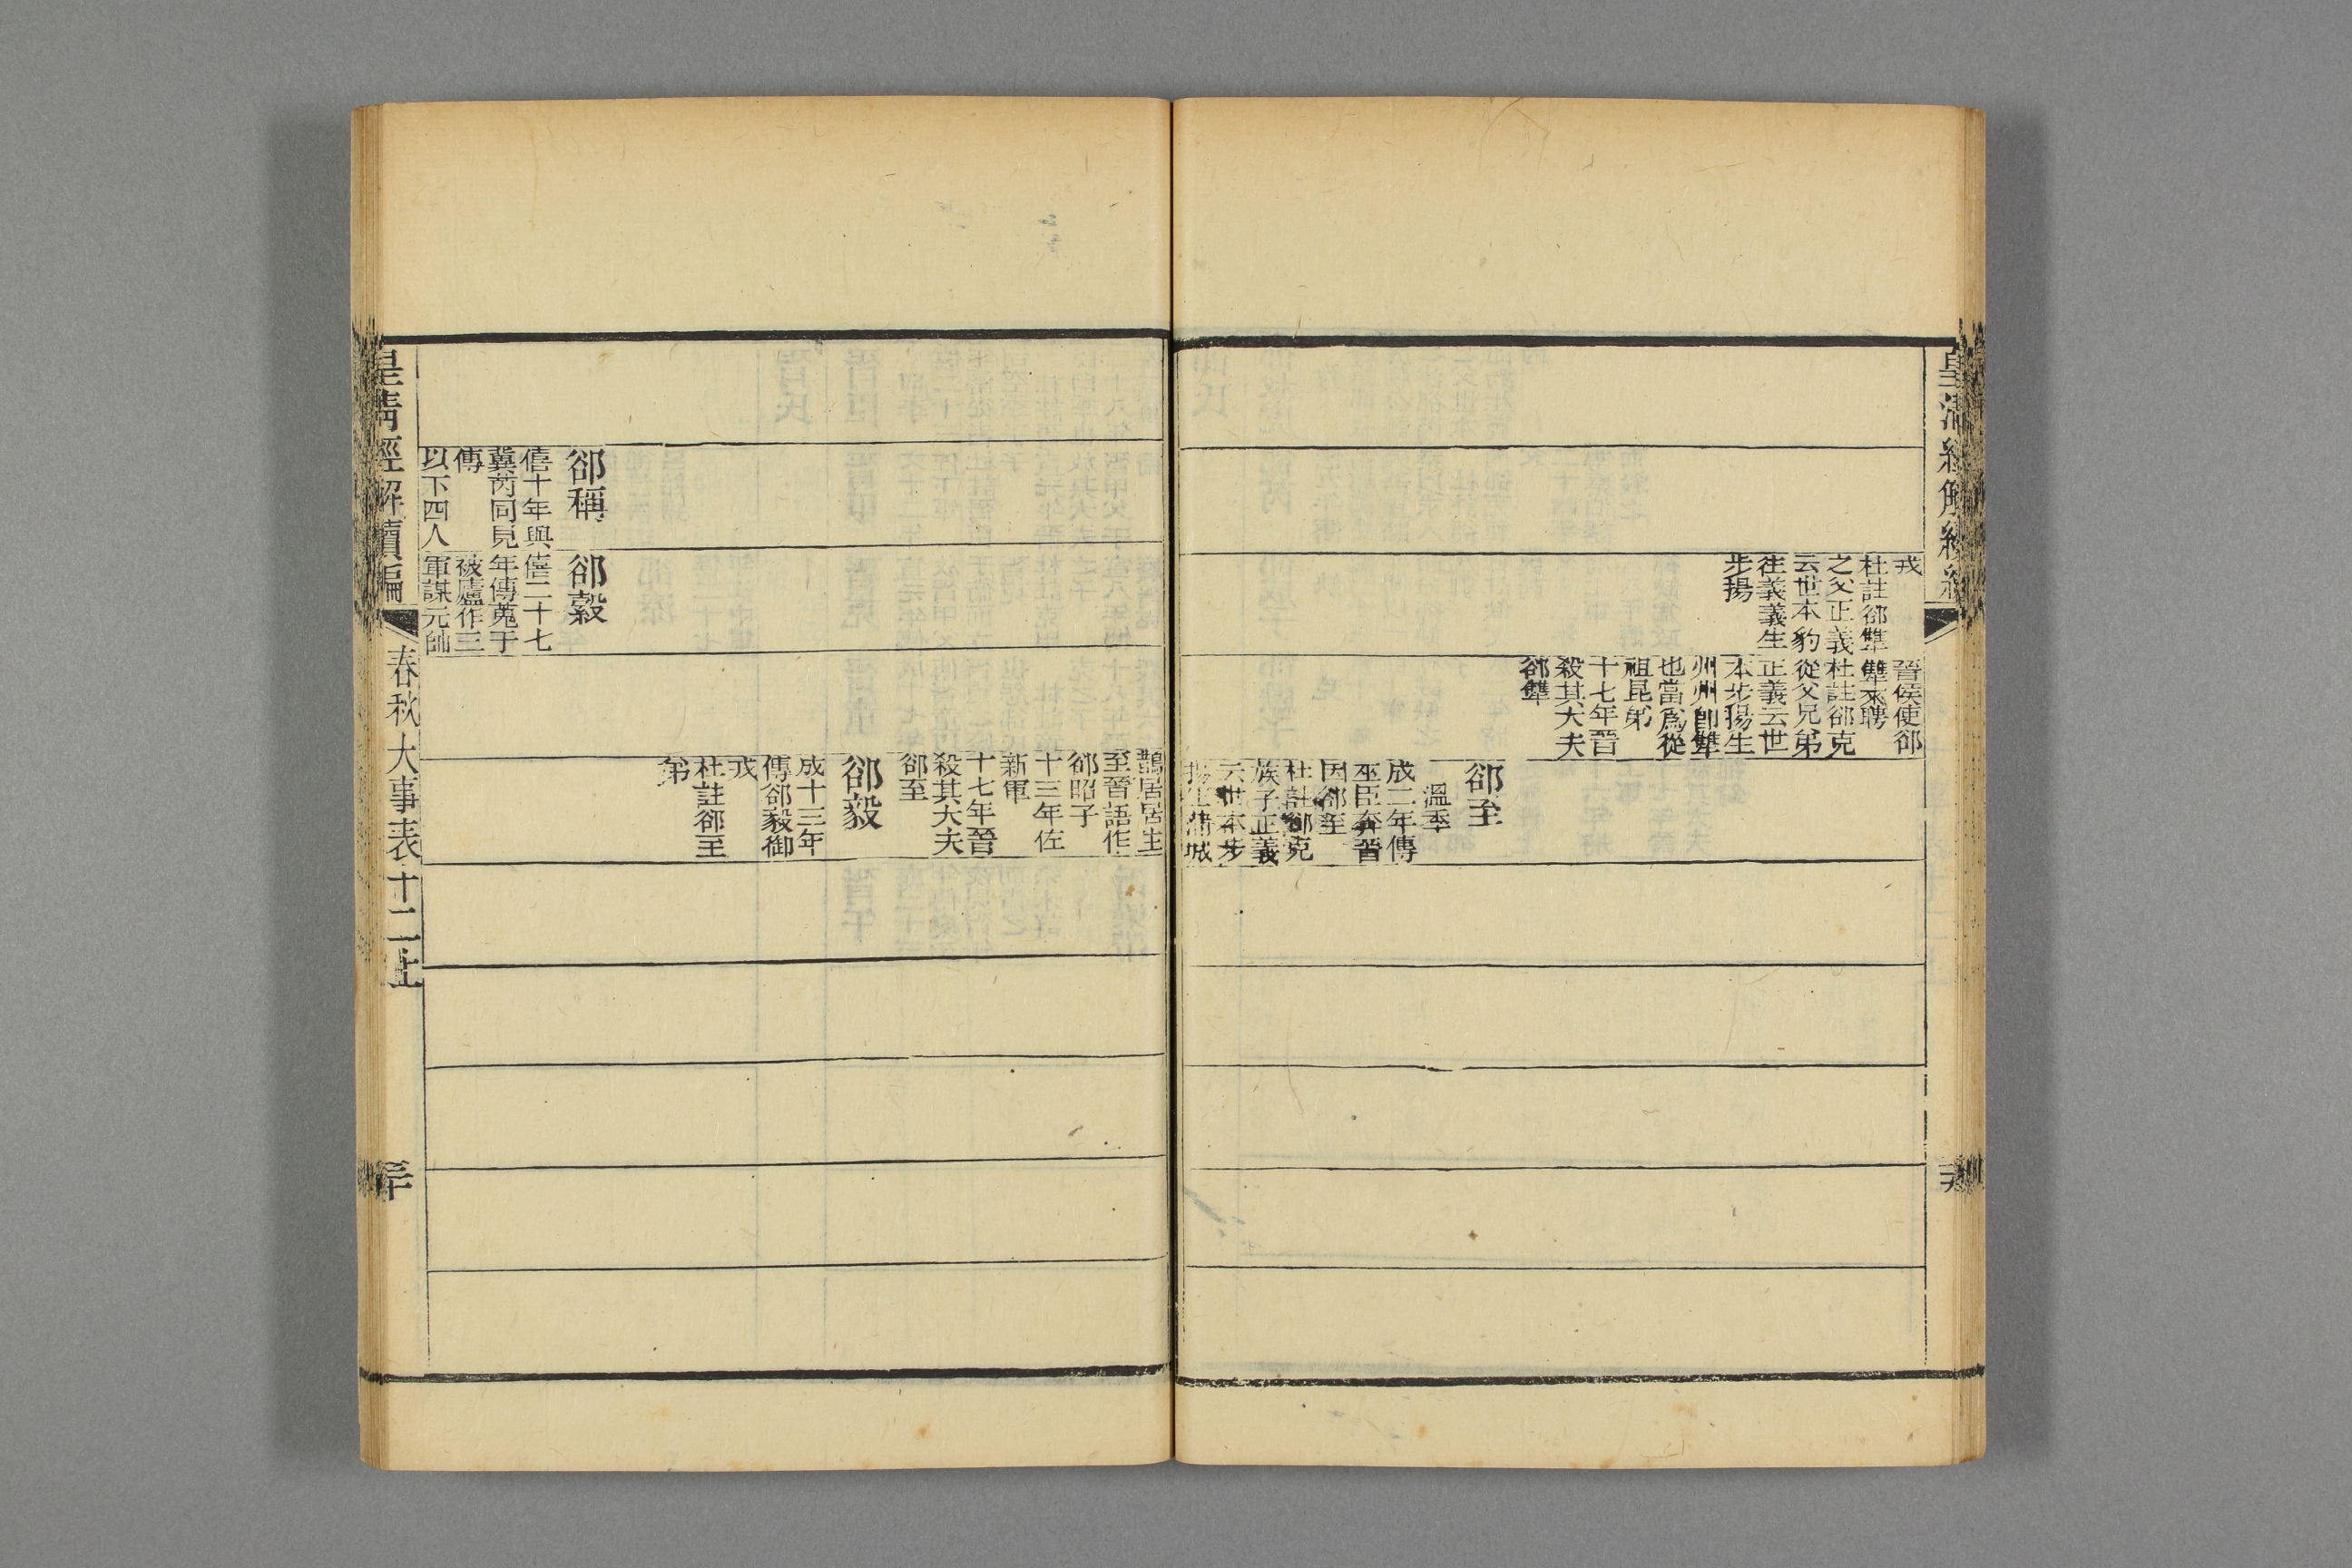 皇清經解續編
戎
杜註郤犨
之父正義
云世本豹
徃義義生
步揚
晉侯使郤
犨來聘
杜註郤克
從父兄弟
正義云世
本步揚生
州州卽犨
也當爲從
祖昆弟
十七年晉
殺其大夫
郤犨
郤至
溫季
成二年傳
巫臣奔晉
因郤至
杜註郤克
族子正義
云世本步
揚生蒲城
鵲居居生
至晉語作
郤昭子
十三年佐
新軍
十七年晉
殺其大夫
郤至
郤毅
成十三年
傳郤毅御
戎
杜註郤至
弟
郤稱
僖十年與
冀芮同見
傳
以下四人
郤縠
僖二十七
年傳蒐于
被廬作三
軍謀元帥
皇清經解續編
春秋大事表十二上
三十